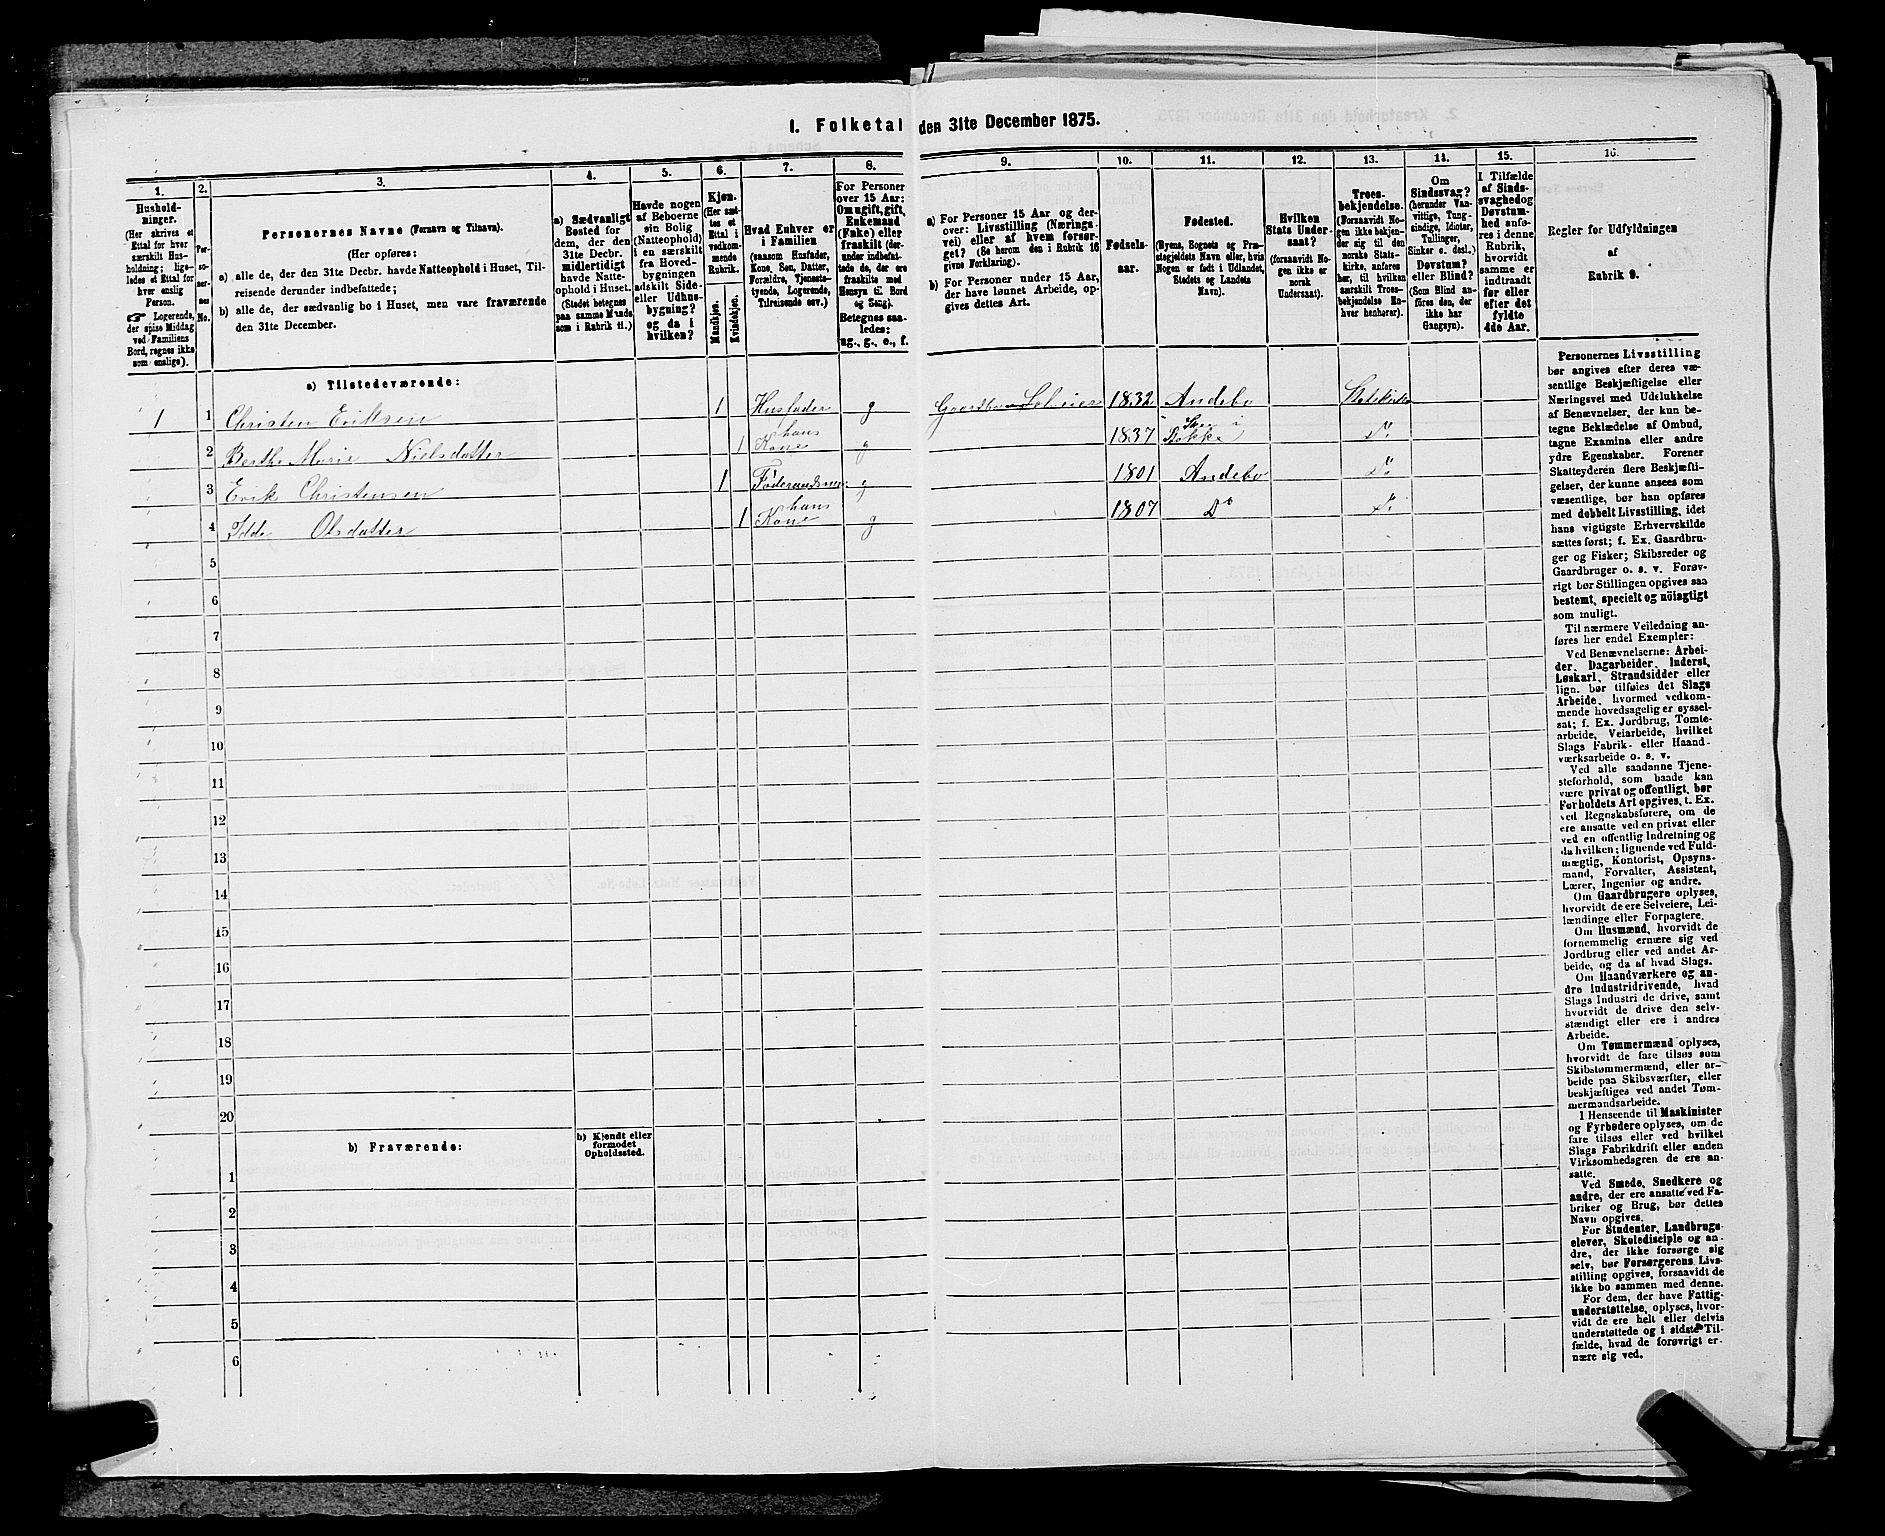 I. Folketal den 31te December 1875.
1. 2. 3. 4. 5. 6. 7. 8. 9. 10. 11. 12. 13. 14. 15. 16.
Hushold-
ninger.
(Her skrives et
Ettal for hver
særskilt Hus-
holdning; lige-
ledes et Ettal for
hver enslig
Person.
☞ Logerende,
der spise Middag
ved Familiens
Bord, regnes ikke
som enslige).
Per-
so-
ner-
nes
No.
Personernes Navne (Fornavn og Tilnavn).
(Her opføres:
a) alle de, der den 31te Decbr. havde Natteophold i Huset, Til-
reisende derunder indbefattede;
b) alle de, der sædvanlig bo i Huset, men vare fraværende
den 31te December.
a) Sædvanligt
Bosted for
dem, der den
31te Decbr.
midlertidigt
havde Natte-
ophold i Huset.
(Stedet betegnes
paa samme Maade
som i Rubrik 11.)
Havde nogen
af Beboerne
sin Bolig
(Natteophold)
i en særskilt
fra Hoved-
bygningen
adskilt Side-
eller Udhus-
bygning?
og da i
hvilken?
Kjøn.
(Her sæt-
tes et
Ettal i
vedkom-
mende
Rubrik.
Mandkjøn.
Kvindekjøn.
Hvad Enhver er
i Familien
(saasom Husfader,
Kone, Søn, Datter,
Forældre, Tjeneste-
tyende, Logerende,
Tilreisende osv.)
For Personer
over 15 Aar:
Om ugift, gift,
Enkemand
(Enke) eller
fraskilt (der-
under indbefat-
tede de, der ere
fraskilte med
Hensyn til Bord
og Seng).
Betegnes saa-
ledes:
ug., g., e., f.
a) For Personer 15 Aar og der-
over: Livsstilling (Nærings-
vei) eller af hvem forsør-
get? (Se herom den i Rubrik 16
givne Forklaring).
b) For Personer under 15 Aar,
der have lønnet Arbeide, op-
gives dettes Art.
Fødsels-
aar.
Fødested.
(Byens, Sognets og Præ-
stegjeldets Navn eller, hvis
Nogen er født i Udlandet,
Stedets og Landets
Navn).
Hvilken
Stats Under-
saat?
(foraavidt No-
gen ikke er
norsk
Undersaat).
Troes-
bekjendelse.
(Foraavidt No-
gen ikke bekjen-
der sig til den
norske Stats-
kirke, anføres
her, til hvilken
særskilt Troes-
bekjendelse En-
hver henhører).
Om
Sindssvag?
(herunder Van-
vittige, Tung-
sindige, Idioter,
Tullinger,
Sinker o. desl.)
Døvstum?
eller Blind?
(Som Blind an-
føres den, der
ikke har
Gangsyn).
I Tilfælde
af Sinds-
svaghed og
Døvstum-
hed anfø-
res i denne
Rubrik,
hvorvidt
samme er
indtraadt
før eller
efter det
fyldte
4de Aar.
Regler for Udfyldningen
af
Rubrik 9.
a) Tilstedeværende:
1 1 Christen Eriksen 1 Husfader g Gaardbruger Selveier 1832 Andebo Statskirke
2 Berthe Marie Nielsdatter 1 hans Kone g 1837 Stokke D°
3 Erik Christensen 1 Føderaadsm. g 1801 Andebo D°
4 Idde Olsdatter 1 hans Kone g 1807 D° D°
5
6
7
8
9
10
11
12
13
14
15
16
17
18
19
20
b) Fraværende:
b) Kjendt eller
formodet
Opholdssted.
1
2
3
4
5
6
Personernes Livsstilling
bør angives efter deres væ-
sentlige Beskjæftigelse eller
Næringsvei med Udelukkelse
af Benævnelser, der kun be-
tegne Beklædelse af Ombud,
tagne Examina eller andre
ydre Egenskaber. Forener
Skatteyderen flere Beskjæfti-
gelser, der kunne ansees som
væsentlige, bør han opføres
med dobbelt Livsstilling, idet
hans vigtigste Erhvervskilde
sættes først; f. Ex. Gaardbru-
ger og Fisker; Skibsreder og
Gaardbruger o. s. v. Forøv-
rigt bør Stillingen opgives saa
bestemt, specielt og nöiagtigt
som muligt.
Til nærmere Veiledning an-
føres her endel Exempler:
Ved Benævnelserne: Arbei-
der, Dagarbeider, Inderst,
Løskarl, Strandsidder eller
lign. bør tilføies det Slags
Arbeide, hvormed vedkom-
mende hovedsagelig er syssel-
sat; f. Ex. Jordbrug, Tomte-
arbeide, Veiarbeide, hvilket
Slags Fabrik- eller Haand-
værksarbeide o. s. v.
Ved alle saadanne Tjene-
steforhold, som baade kan
være privat og offentligt, bør
Forholdets Art opgives, t. Ex.
ved Regnskabsførere, om de
ere ansatte ved en privat eller
ved en offentlig Indretning og
da hvilken; lignende ved Fuld-
mægtig, Kontorist, Opsyns-
mand, Forvalter, Assistent,
Lærer, Ingeniør og andre.
Om Gaardbrugere oplyses,
hvorvidt de ere Selveiere, Lei-
lændinge eller Forpagtere.
Om Husmænd, hvorvidt de
fornemmelig ernære sig ved
Jordbrug eller ved andet Ar-
beide, og da af hvad Slags.
Om Haandværkere og an-
dre Industridrivende, hvad
Slags Industri de drive, samt
hvorvidt de drive den selv-
stændigt eller ere i andres
Arbeide.
Om Tømmermænd oplyses,
hvorvidt de fare tilsøs som
Skibstømmermænd, eller ar-
beide paa Skibsværfter, eller
beskjæftiges ved andet Tøm-
mermandsarbeide.
I Henseende til Maskinister
og Fyrbødere oplyses, om de
fare tilsøs eller ved hvilket
Slags Fabrikdrift eller anden
Virksomhedsgren de ere an-
satte.
Ved Smede, Snedkere og
andre, der ere ansatte ved Fa-
briker og Brug, bør dettes
Navn opgives.
For Studenter, Landbrugs-
elever, Skoledisciple og an-
dre, der ikke forsørge sig
selv, bør Forsørgerens Livs-
stilling opgives, forsaavidt de
ikke bo sammen med denne.
For dem, der have Fattig-
understøttelse, oplyses, hvor-
vidt de ere helt eller delvis
understøttede og i sidste Til-
fælde, hvad de forøvrigt er-
nære sig ved.